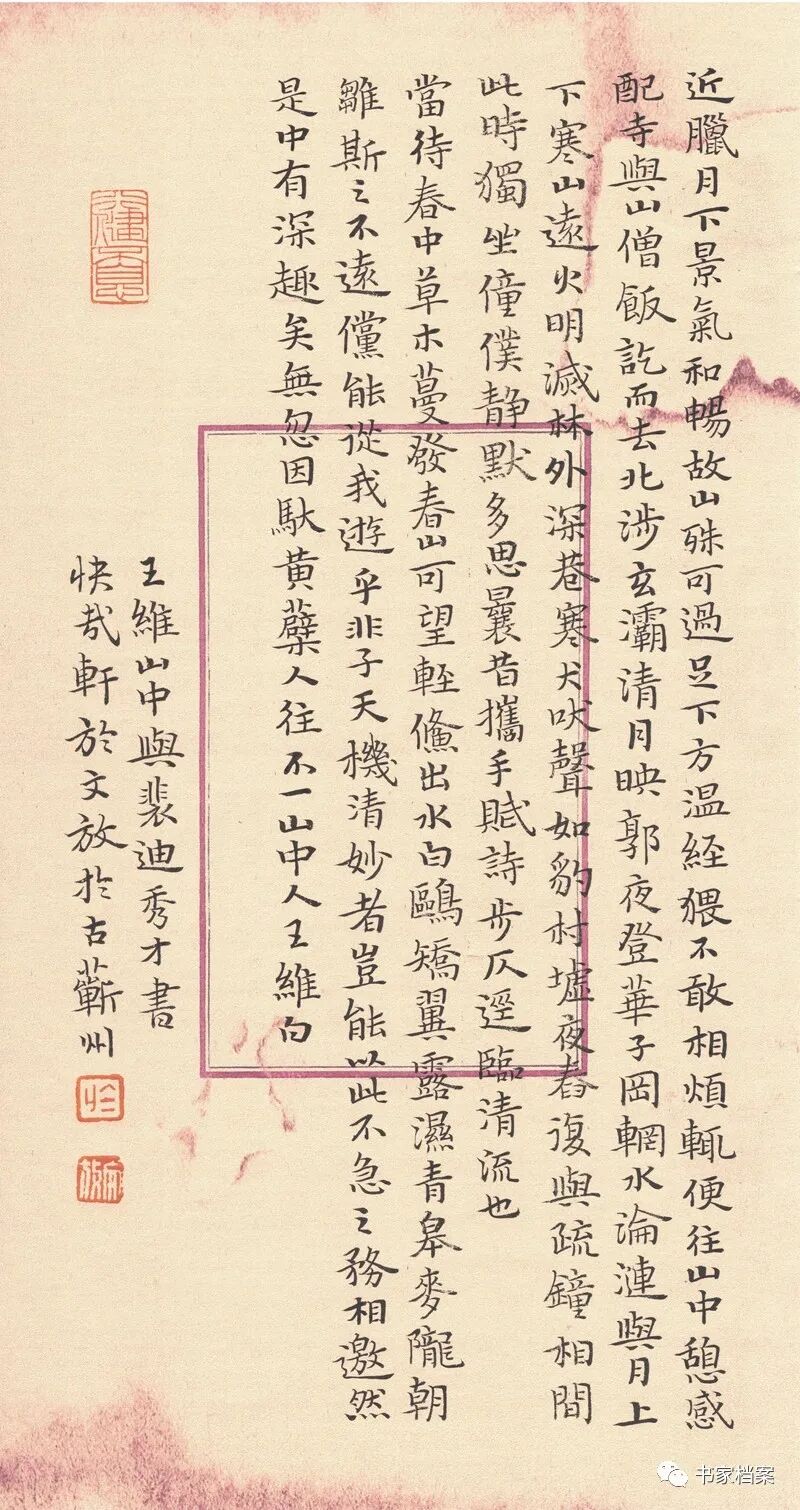 近臘月下景氣和暢故山殊可過足下方温經猥不敢相煩輒便往山中憩感
配寺與山僧飯訖而去北涉玄灞清月映郭夜登華子岡輞水淪漣與月上
下寒山遠火明滅林外深巷寒犬吠聲如豹村墟夜舂復與疏鐘相間
此時獨坐僮僕静默多思曩昔攜手賦詩步仄逕臨清流也
當待春中草木蔓發春山可望輕鯈出水白鷗矯翼露濕青皋麥隴朝
雊斯之不遠儻能從我遊乎非子天機清妙者豈能以此不急之務相邀然
是中有深趣矣無忽因馱黄蘗人往不一山中人王維白
王維山中與裴迪秀才書
快哉軒於文放於古蘄州
书家档案